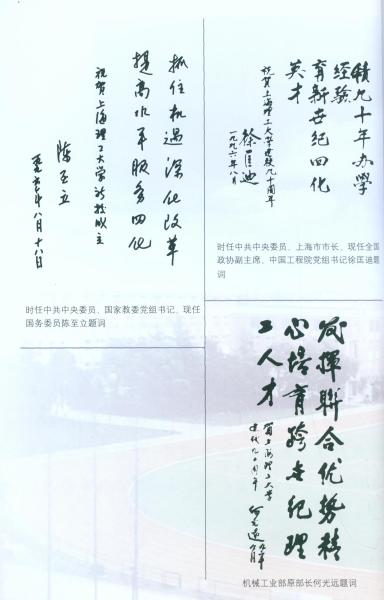 抓住机遇深化改革
提高水平服务四化
祝贺上海理工大学新校成立
陈至立
一九九六年八月十八日
时任中共中央委员、国家教委党组书记、现任
国务委员陈至立题词
续九十年办学
经验
育新世纪四化
英才
祝贺上海理工大学建校九十周年
徐匡迪
一九九六年八月
时任中共中央委员、上海市市长、现任全国
政协副主席、中国工程院党组书记徐匡迪题
词
发挥联合优势精
心培育跨世纪理
工人才
贺上海理工大学
建校九十周年
何光远
机械工业部原部长何光远题词